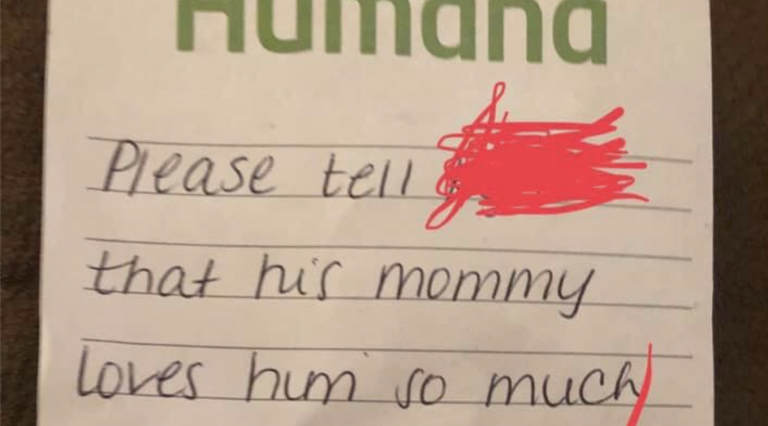 Humana
Please tell
that his mommy
loves him so much